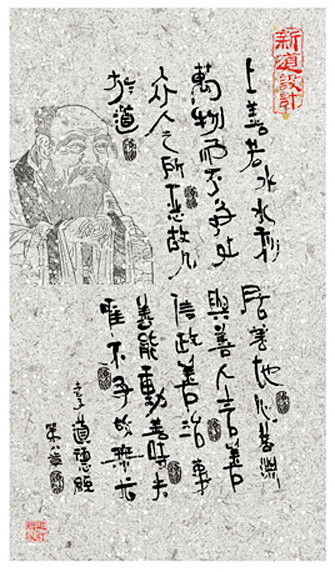 新道設計
上善若水水利
萬物而不争处
众人之所惡故几
於道
居善地心善淵
與善人言善
信政善治事
善能動善時夫
唯不争故無尤
老子道德經
第八章